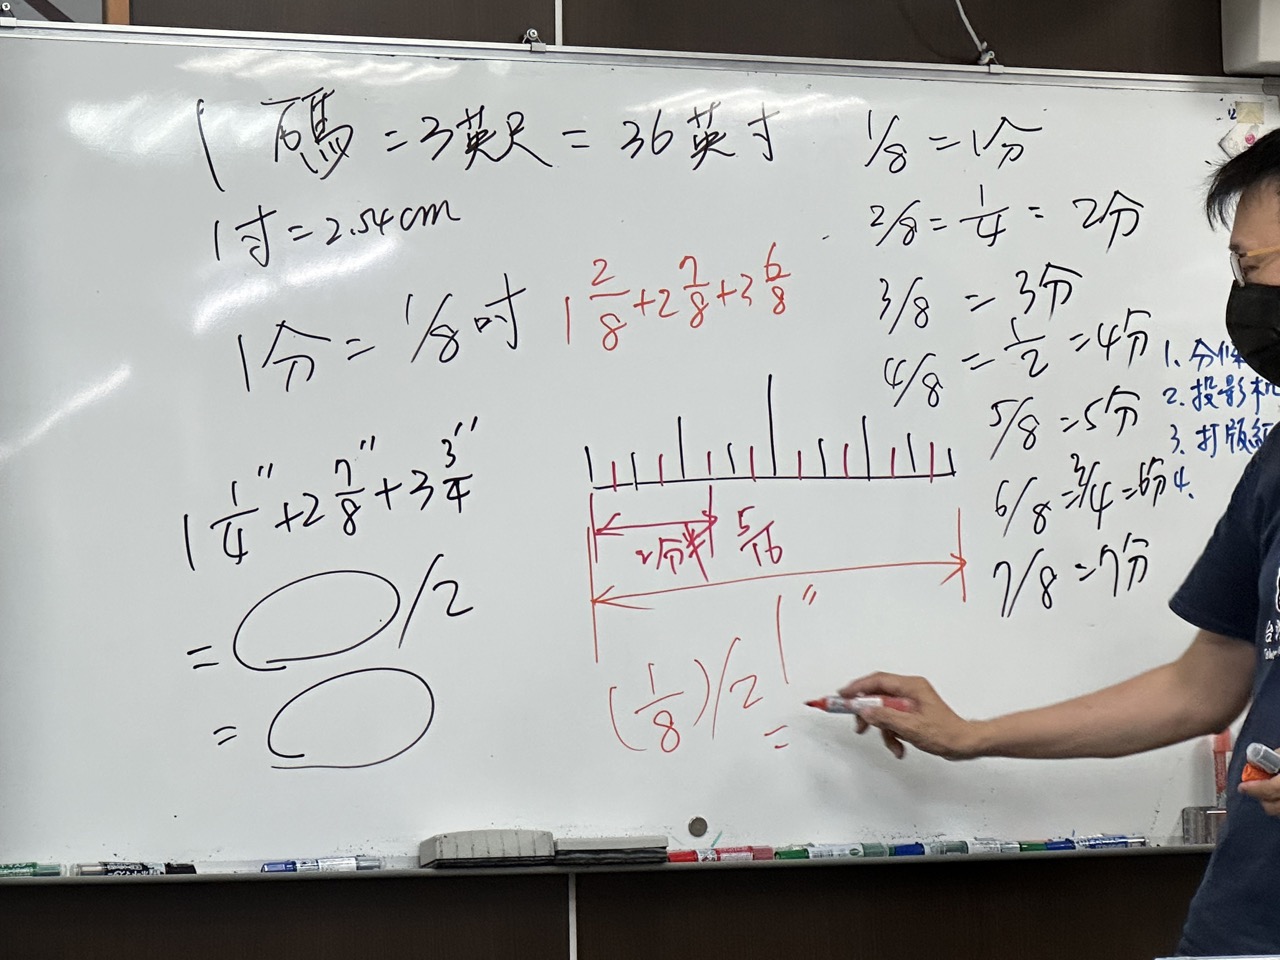 1碼=3英尺=36英寸
1寸=2.54cm
1分=1/8吋
1 2/8+2 7/8+3 6/8
1 1/4"+2 7/8"+3 3/4"
= /2
=
2分半 5/16
1"
(1/8)/2
=
1/8=1分
2/8=1/4=2分
3/8=3分
4/8=1/2=4分
5/8=5分
6/8=3/4=6分
7/8=7分
1. 分
2. 投影机
3. 打版紙
4.